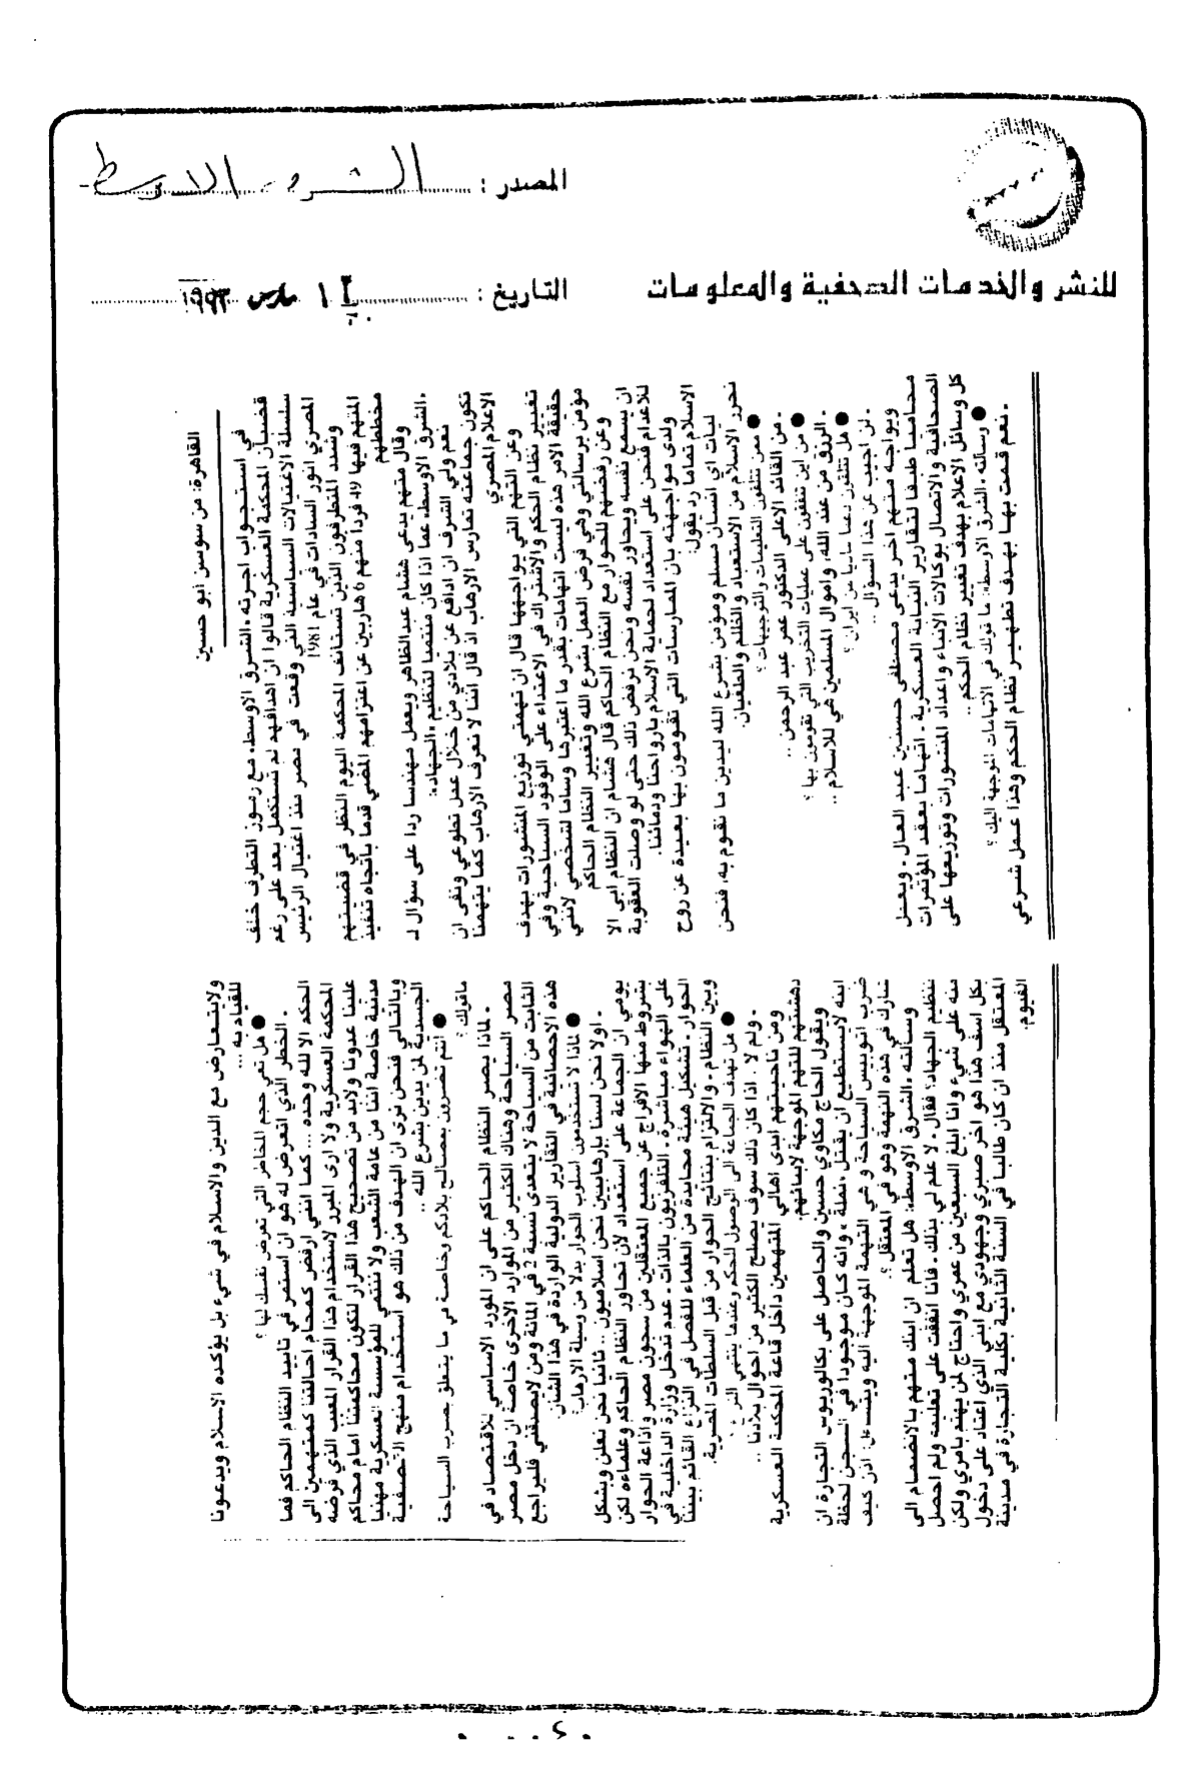 المصدر : الشرق الاوسط
للنشر والخدمات الصحفية والمعلومات
التاريخ : مارس ١٩٩٣
القاهرة: من سوسن ابو حسين
في استجواب اجرته «الشرق الاوسط» مع رموز التطرف خلف
قضبان المحكمة العسكرية قالوا ان اهدافهم لم تستكمل بعد على رغم
سلسلة الاغتيالات السياسية التي وقعت في مصر منذ اغتيال الرئيس
المصري انور السادات في عام 1981
وشدد المتطرفون الذين تستأنف المحكمة اليوم النظر في قضيتهم
المتهم فيها 49 فردا منهم 6 هاربين عن اعتزامهم المضي قدما باتجاه تنفيذ
مخططهم
وقال متهم يدعى هشام عبدالظاهر ويعمل مهندسا ردا على سؤال لـ
«الشرق الاوسط» عما اذا كان منتميا لتنظيم «الجهاد»:
نعم ولي الشرف ان ادافع عن بلادي من خلال عمل تطوعي ونفى ان
تكون جماعته تمارس الارهاب اذ قال اننا لا نعرف الارهاب كما يتهمنا
الاعلام المصري
وعن التهم التي يواجهها قال ان تهمتي توزيع المنشورات بهدف
تغيير نظام الحكم والاشتراك في الاعتداء على الوفود السياحية وفي
حقيقة الامر هذه ليست اتهامات بقدر ما اعتبرها وساما لشخصي لانني
مؤمن برسالتي وهي فرض العمل بشرع الله وتغيير النظام الحاكم
وعن رفضهم للحوار مع النظام الحاكم قال هشام ان النظام ابى الا
ان يسمع نفسه ويحاور نفسه ونحن نرفض ذلك حتى لو وصلت العقوبة
للاعدام فنحن على استعداد لحماية الاسلام بارواحنا ودمائنا.
ولدى مواجهته بان الممارسات التي تقومون بها بعيدة عن روح
الاسلام تماما رد يقول:
ليات اي انسان مسلم ومؤمن بشرع الله ليدين ما نقوم به، فنحن
نحرر الاسلام من الاستعباد والظلم والطغيان.
● ممن تتلقون التعليمات والتوجيهات؟
ـ من القائد الاعلى الدكتور عمر عبد الرحمن ..
● من اين تنفقون على عمليات التخريب التي تقومون بها ؟
ـ الرزق من عند الله، واموال المسلمين هي للاسلام ..
● هل تتلقون دعما ماديا من ايران ؟
ـ لن اجيب عن هذا السؤال ..
ويواجه متهم اخر يدعى مصطفى حسنين عبد العال ـ ويعمل
محاميا طبقا لتقارير النيابة العسكرية ـ اتهاما بعقد المؤتمرات
الصحافية والاتصال بوكالات الانباء واعداد المنشورات وتوزيعها على
كل وسائل الاعلام بهدف تغيير نظام الحكم ..
● وسألته «الشرق الاوسط» ما قولك في الاتهامات الموجهة اليك ؟
ـ نعم قمت بها بهدف تطهير نظام الحكم وهذا عمل شرعي
ولايتعارض مع الدين والاسلام في شيء بل يؤكده الاسلام ويدعونا
للقيام به ...
● هل تعي حجم المخاطر التي تعرض نفسك لها ؟
ـ الخطر الذي اتعرض له هو ان استمر في تأييد النظام الحاكم فما
الحكم الا لله وحده ... كما انني ارفض كمحام احالتنا كمتهمين الى
المحكمة العسكرية ولا ارى المبرر لاستخدام هذا القرار المعيب الذي فرضه
علينا عدونا ولابد من تصحيح هذا القرار لتكون محاكمتنا امام محاكم
مدنية خاصة اننا من عامة الشعب ولا ننتمي للمؤسسة العسكرية مهنيا
وبالتالي فنحن نرى ان الهدف من ذلك هو استخدام منهج التصفية
الجسدية لمن يدين بشرع الله ..
● انتم تضرون بمصالح بلادكم وخاصة في ما يتعلق بضرب السياحة
ماقولك ؟
ـ لماذا يصر النظام الحاكم على ان المورد الاساسي للاقتصاد في
مصر السياحة وهناك الكثير من الموارد الاخرى خاصة ان دخل مصر
الثابت من السياحة لا يتعدى نسبة 2 في المائة ومن لايصدقني فليراجع
هذه الاحصائية في التقارير الدولية الواردة في هذا الشأن.
● لماذا لا تستخدمون اسلوب الحوار بدلا من وسيلة الارهاب؟
ـ اولا نحن لسنا بإرهابيين نحن اسلاميون .. ثانيا نحن نعلن وبشكل
يومي ان الجماعة على استعداد لان تحاور النظام الحاكم وعلماءه لكن
بشروط منها الافراج عن جميع المعتقلين من سجون مصر واذاعة الحوار
على الهواء مباشرة ـ التلفزيون بالذات ـ عدم تدخل وزارة الداخلية في
الحوار ـ تشكيل هيئة محايدة من العلماء للفصل في النزاع القائم بيننا
وبين النظام ـ والالتزام بنتائج الحوار من قبل السلطات المصرية.
● هل تهدف الجماعة الى الوصول للحكم وعندها ينتهي
ـ ولم لا . اذا كان ذلك سوف يصلح الكثير من احوال بلادنا ..
ومن ناحيتهم ابدى اهالي المتهمين داخل قاعة المحكمة العسكرية
دهشتهم للتهم الموجهة لابنائهم.
ويقول الحاج مكاوي حسين والحاصل على بكالوريوس التجارة ان
ابنه لايستطيع ان يقتل «نملة» وانه كان موجودا في السجن لحظة
ضرب اتوبيس السياحة و هي التهمة الموجهة اليه ويتساءل: اذن كيف
شارك في هذه التهمة وهو في المعتقل ؟.
وسألته «الشرق الاوسط»: هل تعلم ان ابنك متهم بالانضمام الى
تنظيم الجهاد؟ فقال ـ لا علم لي بذلك . فانا انفقت على تعليمه ولم احصل
منه على شيء وانا ابلغ السبعين من عمري واحتاج لمن يهتم بامري ولكن
بكل اسف هذا هو اخر صبري وجهودي مع ابني الذي اعتاد على دخول
المعتقل منذ ان كان طالبا في السنة الثانية بكلية التجارة في مدينة
الفيوم.